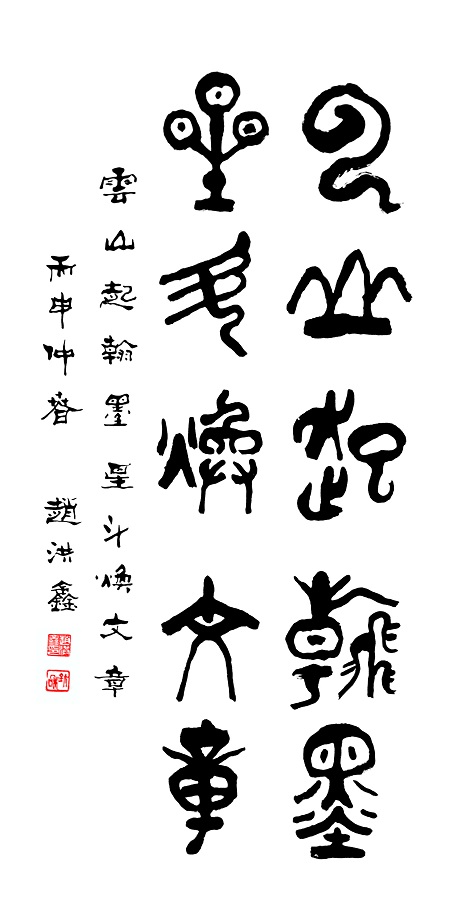 云山起翰墨
星斗焕文章
雲山起翰墨星斗焕文章
丙申仲春 趙洪鑫